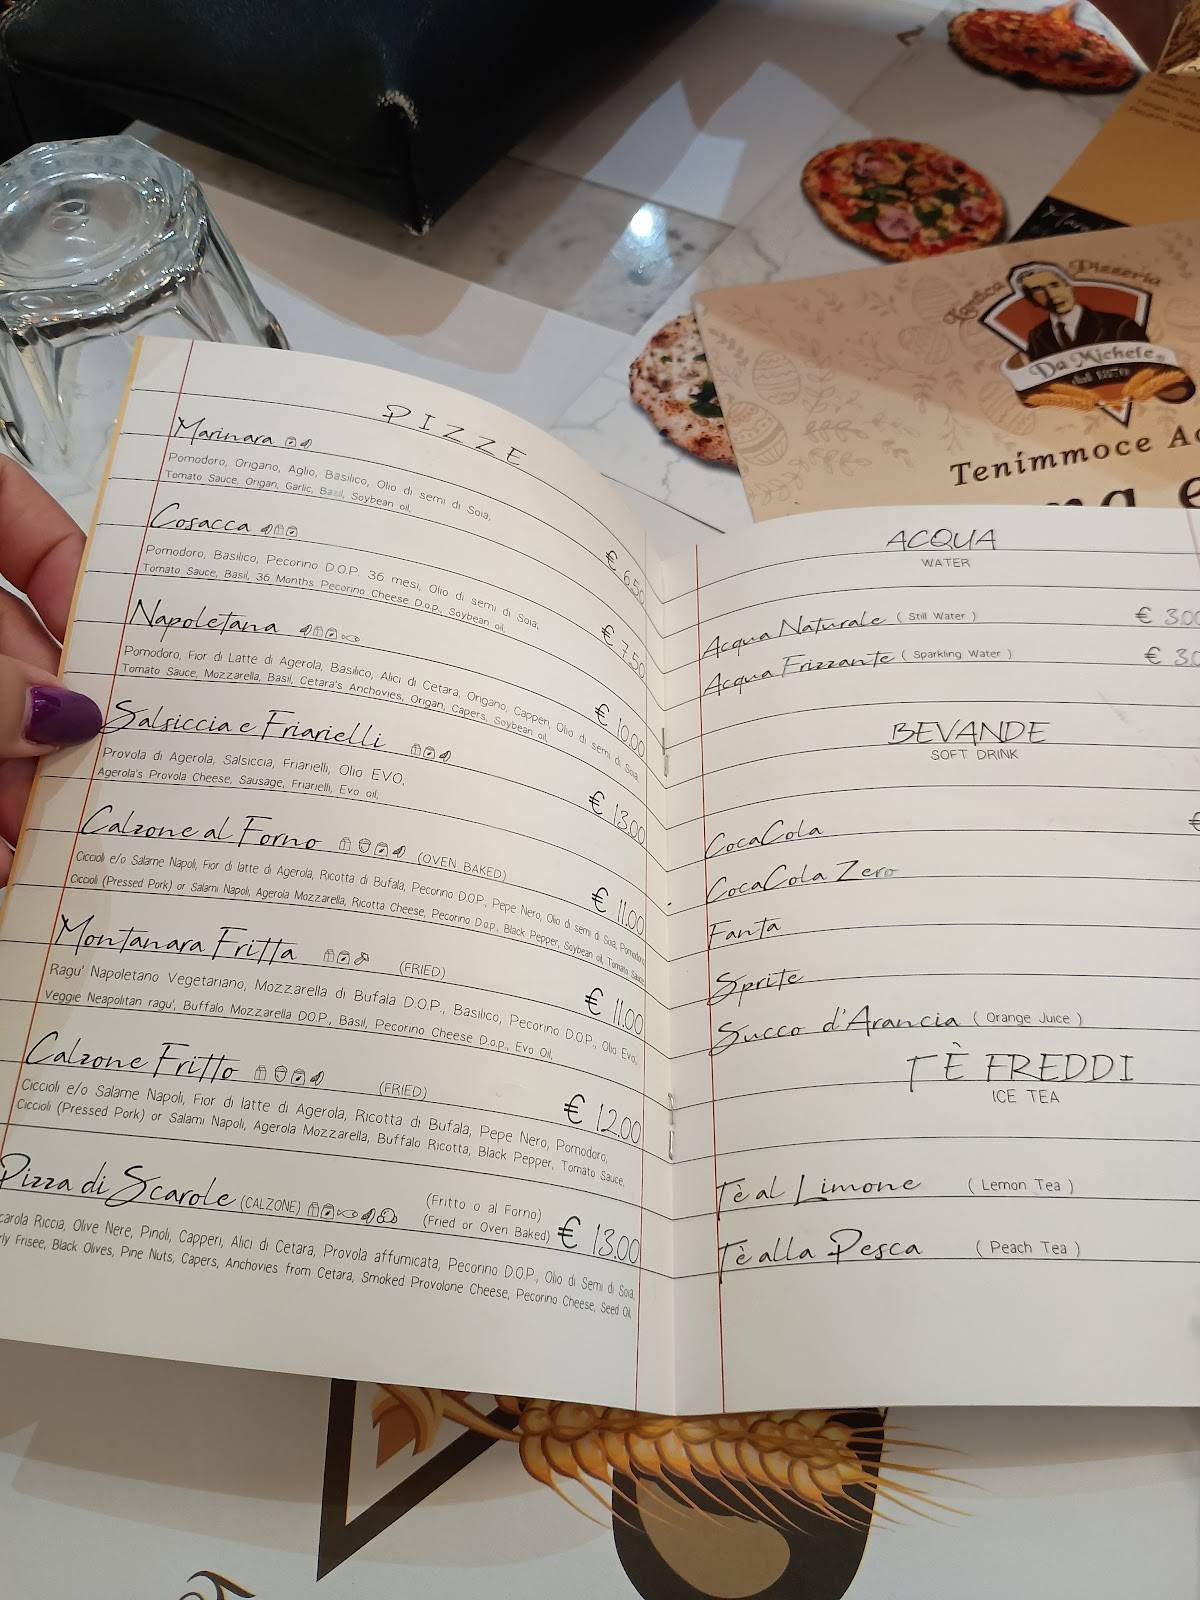 PIZZE
Marinara
Pomodoro, Origano, Aglio, Basilico, Olio di semi di Soia,
Tomato Sauce, Origan, Garlic, Basil, Soybean oil,
€ 6.50
Cosacca
Pomodoro, Basilico, Pecorino D.O.P. 36 mesi, Olio di semi di Soia,
Tomato Sauce, Basil, 36 Months Pecorino Cheese D.o.p., Soybean oil,
€ 7.50
Napoletana
Pomodoro, Fior di Latte di Agerola, Basilico, Alici di Cetara, Origano, Capperi, Olio di semi di Soia,
Tomato Sauce, Mozzarella, Basil, Cetara's Anchovies, Origan, Capers, Soybean oil,
€ 10.00
Salsiccia e Friarielli
Provola di Agerola, Salsiccia, Friarielli, Olio EVO,
Agerola's Provola Cheese, Sausage, Friarielli, Evo oil,
€ 13.00
Calzone al Forno (OVEN BAKED)
Ciccioli e/o Salame Napoli, Fior di latte di Agerola, Ricotta di Bufala, Pecorino D.O.P., Pepe Nero, Olio di semi di Soia, Pomodoro
Ciccioli (Pressed Pork) or Salami Napoli, Agerola Mozzarella, Ricotta Cheese, Pecorino D.o.p., Black Pepper, Soybean oil, Tomato Sauce
€ 11.00
Montanara Fritta (FRIED)
Ragu' Napoletano Vegetariano, Mozzarella di Bufala D.O.P., Basilico, Pecorino D.O.P., Olio Evo,
Veggie Neapolitan ragu', Buffalo Mozzarella D.O.P., Basil, Pecorino Cheese D.o.p., Evo Oil,
€ 11.00
Calzone Fritto (FRIED)
Ciccioli e/o Salame Napoli, Fior di latte di Agerola, Ricotta di Bufala, Pepe Nero, Pomodoro,
Ciccioli (Pressed Pork) or Salami Napoli, Agerola Mozzarella, Buffalo Ricotta, Black Pepper, Tomato Sauce,
€ 12.00
Pizza di Scarole (CALZONE) (Fritto o al Forno)
(Fried or Oven Baked) € 13.00
carola Riccia, Olive Nere, Pinoli, Capperi, Alici di Cetara, Provola affumicata, Pecorino D.O.P., Olio di Semi di Soia,
rly Frisee, Black Olives, Pine Nuts, Capers, Anchovies from Cetara, Smoked Provolone Cheese, Pecorino Cheese, Seed Oil,
ACQUA
WATER
Acqua Naturale ( Still Water ) € 3.00
Acqua Frizzante ( Sparkling Water ) € 3.0
BEVANDE
SOFT DRINK
€
CocaCola
CocaCola Zero
Fanta
Sprite
Succo d'Arancia ( Orange Juice )
TÈ FREDDI
ICE TEA
Tè al Limone ( Lemon Tea )
Tè alla Pesca ( Peach Tea )
Antica Pizzeria
Da Michele
dal 1870
Tenimmoce Ac